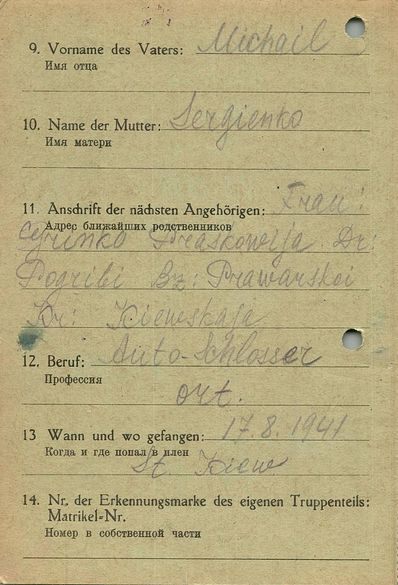 9. Vorname des Vaters: Michail
Имя отца
10. Name der Mutter: Sergienko
Имя матери
11. Anschrift der nächsten Angehörigen: Frau:
Адрес ближайших родственников
Praskowija Dr:
Pogribi Bz: Prawarskoi
Kr: Kiewskaja
12. Beruf: Auto-Schlosser
Профессия
ort.
13 Wann und wo gefangen: 17.8.1941
Когда и где попал в плен
St. Kiew
14. Nr. der Erkennungsmarke des eigenen Truppenteils:
Matrikel=Nr.
Номер в собственной части